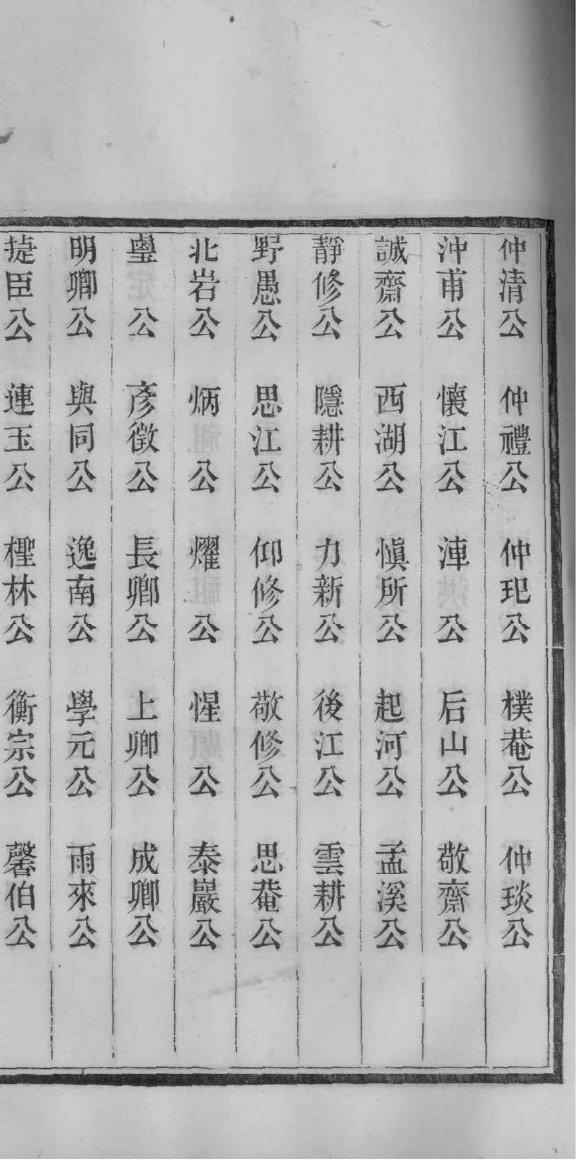 仲清公　仲禮公　仲玘公　樸菴公　仲琰公
沖甫公　懷江公　渖公　后山公　敬齋公
誠齋公　西湖公　愼所公　起河公　孟溪公
靜修公　隱耕公　力新公　後江公　雲耕公
野愚公　思江公　仰修公　敬修公　思菴公
北岩公　炳公　燿公　惺公　泰巖公
公　彥徵公　長卿公　上卿公　成卿公
明卿公　與同公　逸南公　學元公　雨來公
捷臣公　連玉公　檉林公　衡宗公　馨伯公